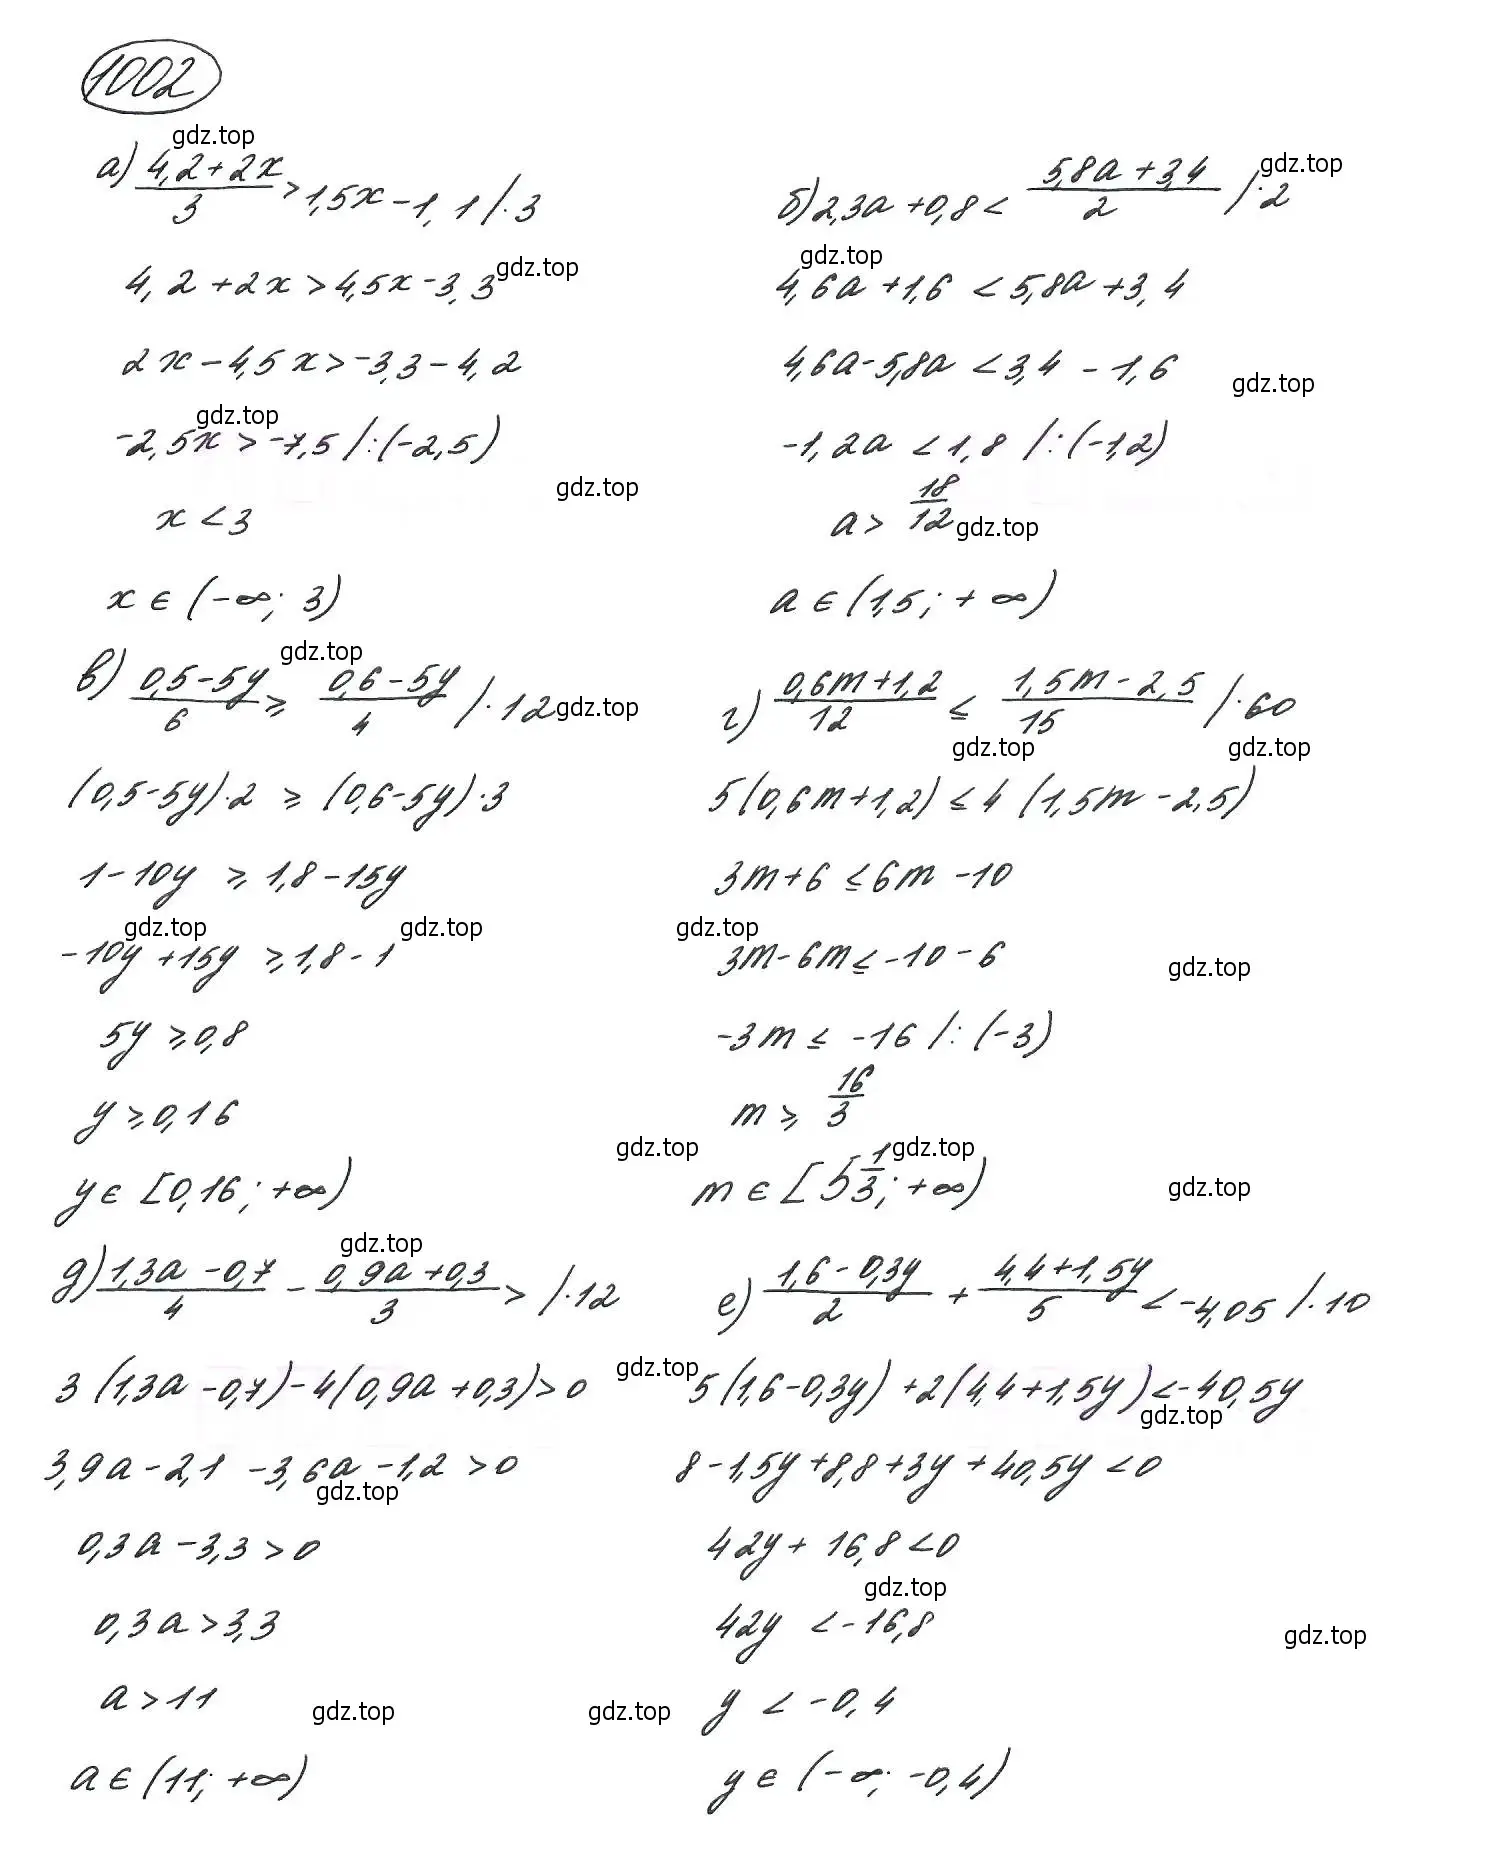 1002
gdz.top
а) (4,2+2x)/3 > 1,5x-1,1 /·3
4,2+2x>4,5x-3,3
gdz.top
2x-4,5x>-3,3-4,2
gdz.top
-2,5x>-7,5 /:(-2,5)
gdz.top
x<3
x∈(-∞; 3)
gdz.top
б) 2,3a+0,8< (5,8a+3,4)/2 /·2
gdz.top
4,6a+1,6<5,8a+3,4
4,6a-5,8a<3,4-1,6
gdz.top
-1,2a<1,8 /:(-1,2)
a> 18/12
gdz.top
a∈(1,5; +∞)
gdz.top
в) (0,5-5y)/6 ≥ (0,6-5y)/4 /·12
gdz.top
(0,5-5y)·2 ≥ (0,6-5y)·3
1-10y ≥ 1,8-15y
gdz.top
gdz.top
-10y+15y ≥ 1,8-1
5y ≥ 0,8
y ≥ 0,16
gdz.top
y∈[0,16; +∞)
г) (0,6m+1,2)/12 ≤ (1,5m-2,5)/15 /·60
gdz.top
gdz.top
5(0,6m+1,2) ≤ 4(1,5m-2,5)
3m+6 ≤ 6m-10
gdz.top
3m-6m ≤ -10-6
gdz.top
-3m ≤ -16 /:(-3)
m ≥ 16/3
gdz.top
m∈[5 1/3; +∞)
gdz.top
gdz.top
д) (1,3a-0,7)/4 - (0,9a+0,3)/3 > /·12
3(1,3a-0,7)-4(0,9a+0,3)>0
gdz.top
3,9a-2,1-3,6a-1,2>0
gdz.top
0,3a-3,3>0
0,3a>3,3
a>11
gdz.top
gdz.top
a∈(11; +∞)
е) (1,6-0,3y)/2 + (4,4+1,5y)/5 < -4,05 /·10
5(1,6-0,3y)+2(4,4+1,5y)<-40,5y
gdz.top
8-1,5y+8,8+3y+40,5y<0
42y+16,8<0
gdz.top
42y<-16,8
gdz.top
y<-0,4
y∈(-∞; -0,4)